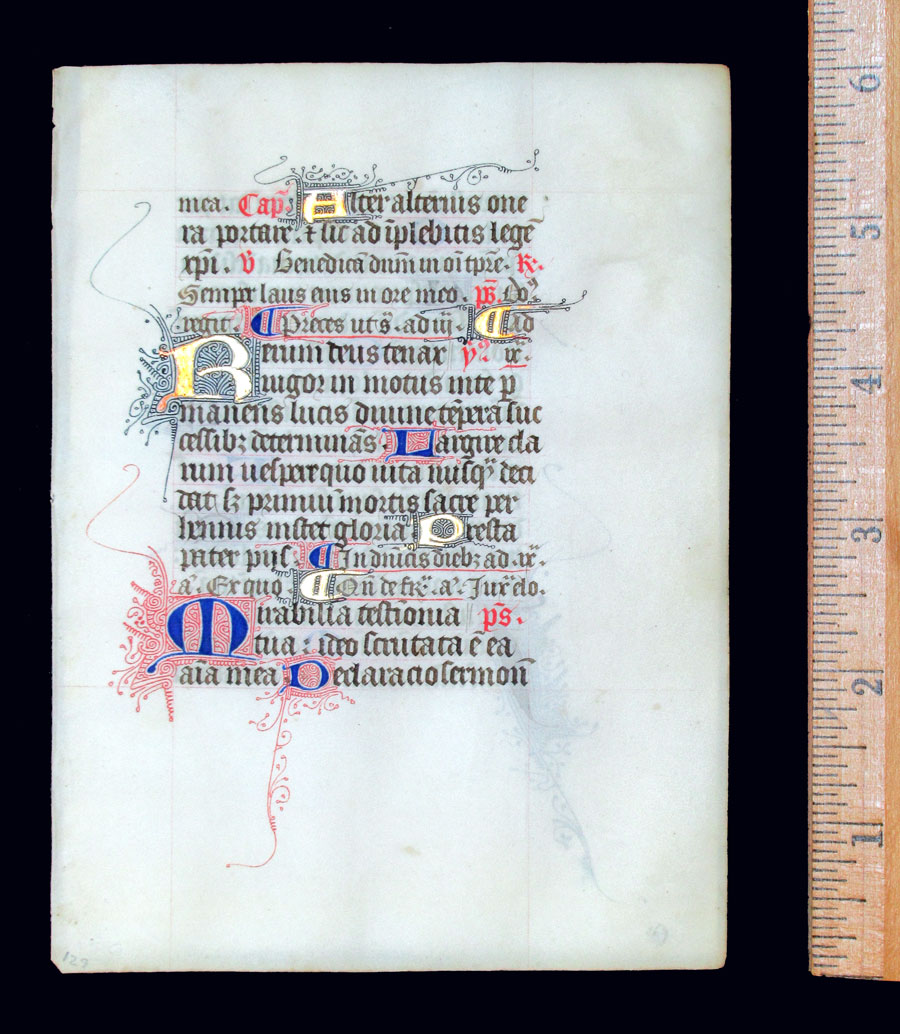 mea. Cap̄. Alter alterius one
ra portate. ⁊ sic ad īplebitis legē
xp̄i. v̄ Benedicā dum̄ in oī tp̄re. R̄.
Semper laus eius in ore meo. ps̄. Do
regit. Preces ut s̄. ad iij. Ad
Rerum deus tenax ix.
uigor in motus in te p̄
manens lucis diurne tēpora suc
cessib; determinās. Largire cla
rum uesper quo uita nusq̄ deci
dat s; premiū mortis sacre per
hennis instet gloria Presta
pater pijs. In dn̄icis dieb; ad ix.
aͣ. Ex quo On̄ de fr̄. aͣ. Juxͣ elo.
Mirabilia testīonia ps̄.
tua : ideo scrutata ē ea
aīa mea Declaracio sermonū
123
1
2
3
4
5
6